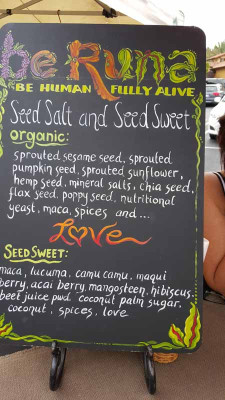 be Runa
BE HUMAN FULLY ALIVE
Seed Salt and Seed Sweet
organic:
sprouted sesame seed, sprouted
pumpkin seed, sprouted sunflower,
hemp seed, mineral salts, chia seed,
flax seed, poppy seed, nutritional
yeast, maca, spices and ...
Love
SEED SWEET:
maca, lucuma, camu camu, maqui
berry, acai berry, mangosteen, hibiscus,
beet juice pwd. coconut palm sugar,
coconut, spices, love